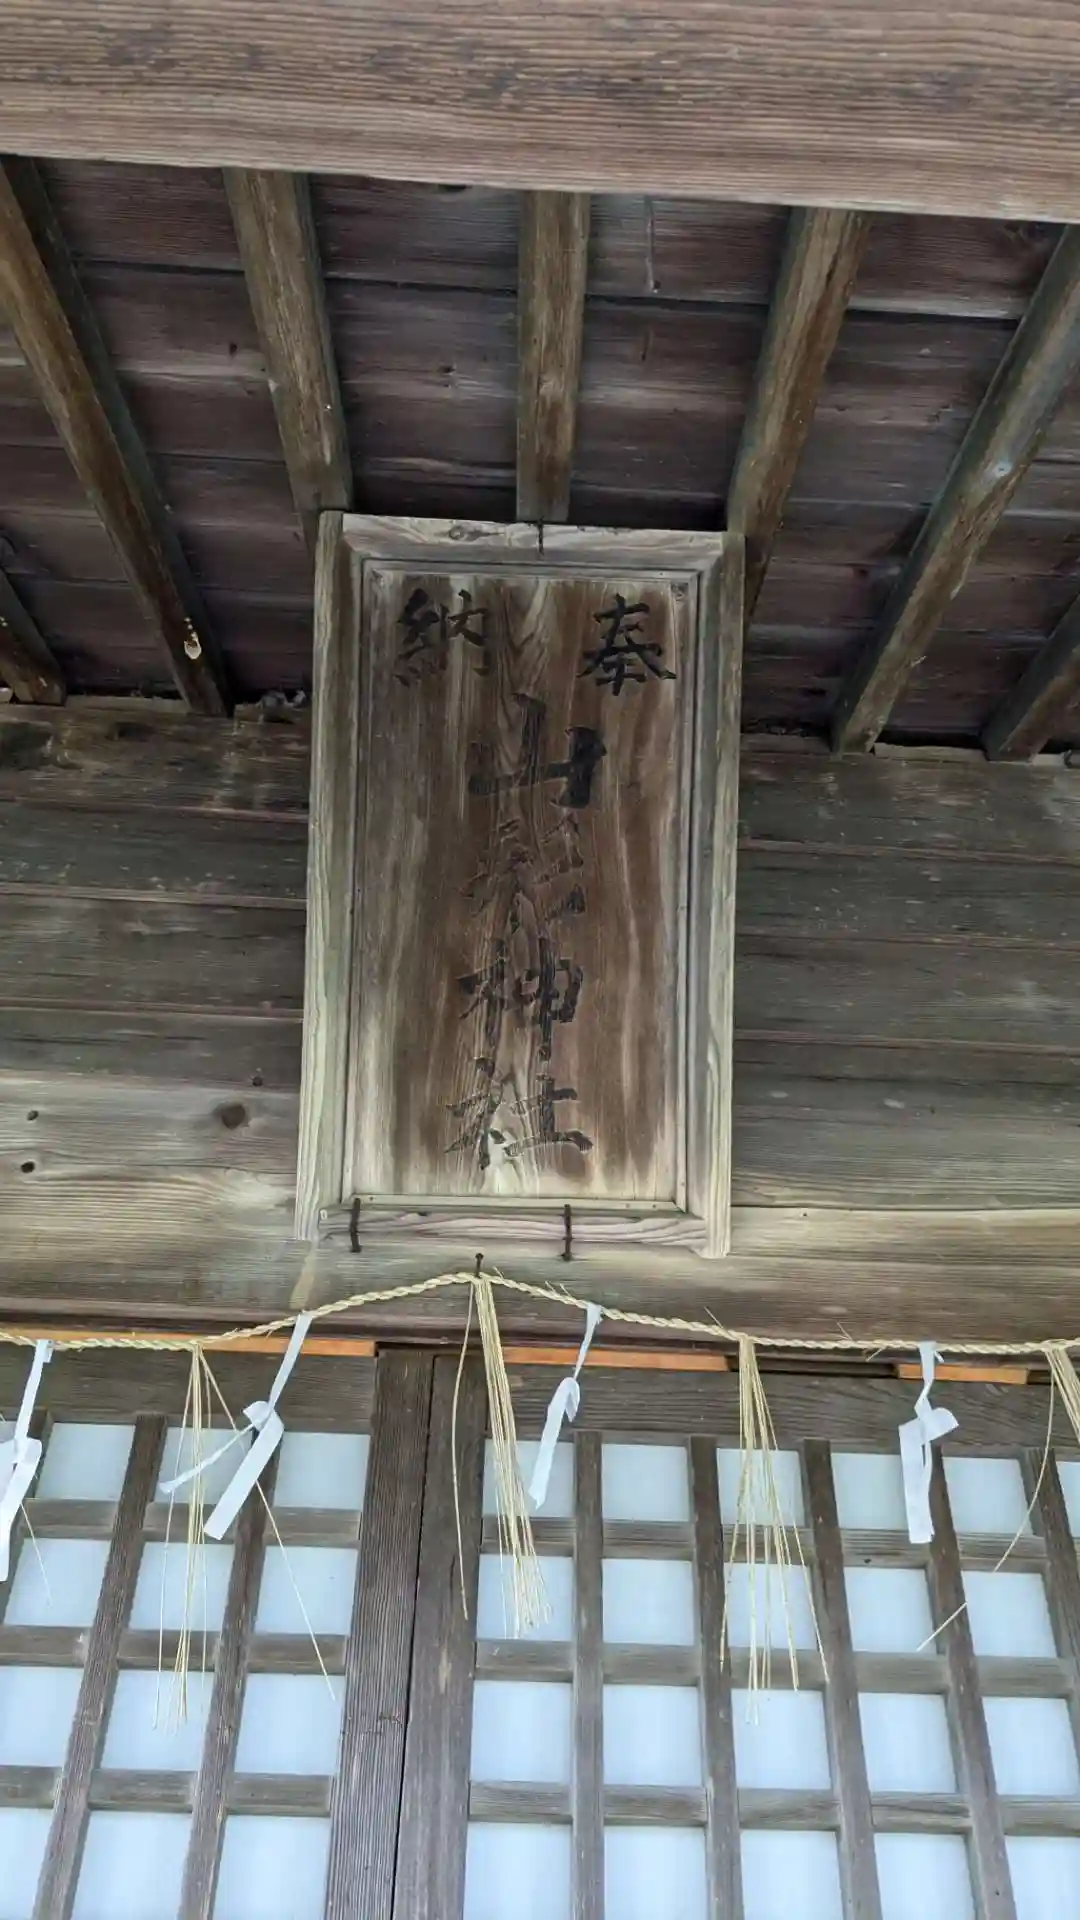 奉納
山神社